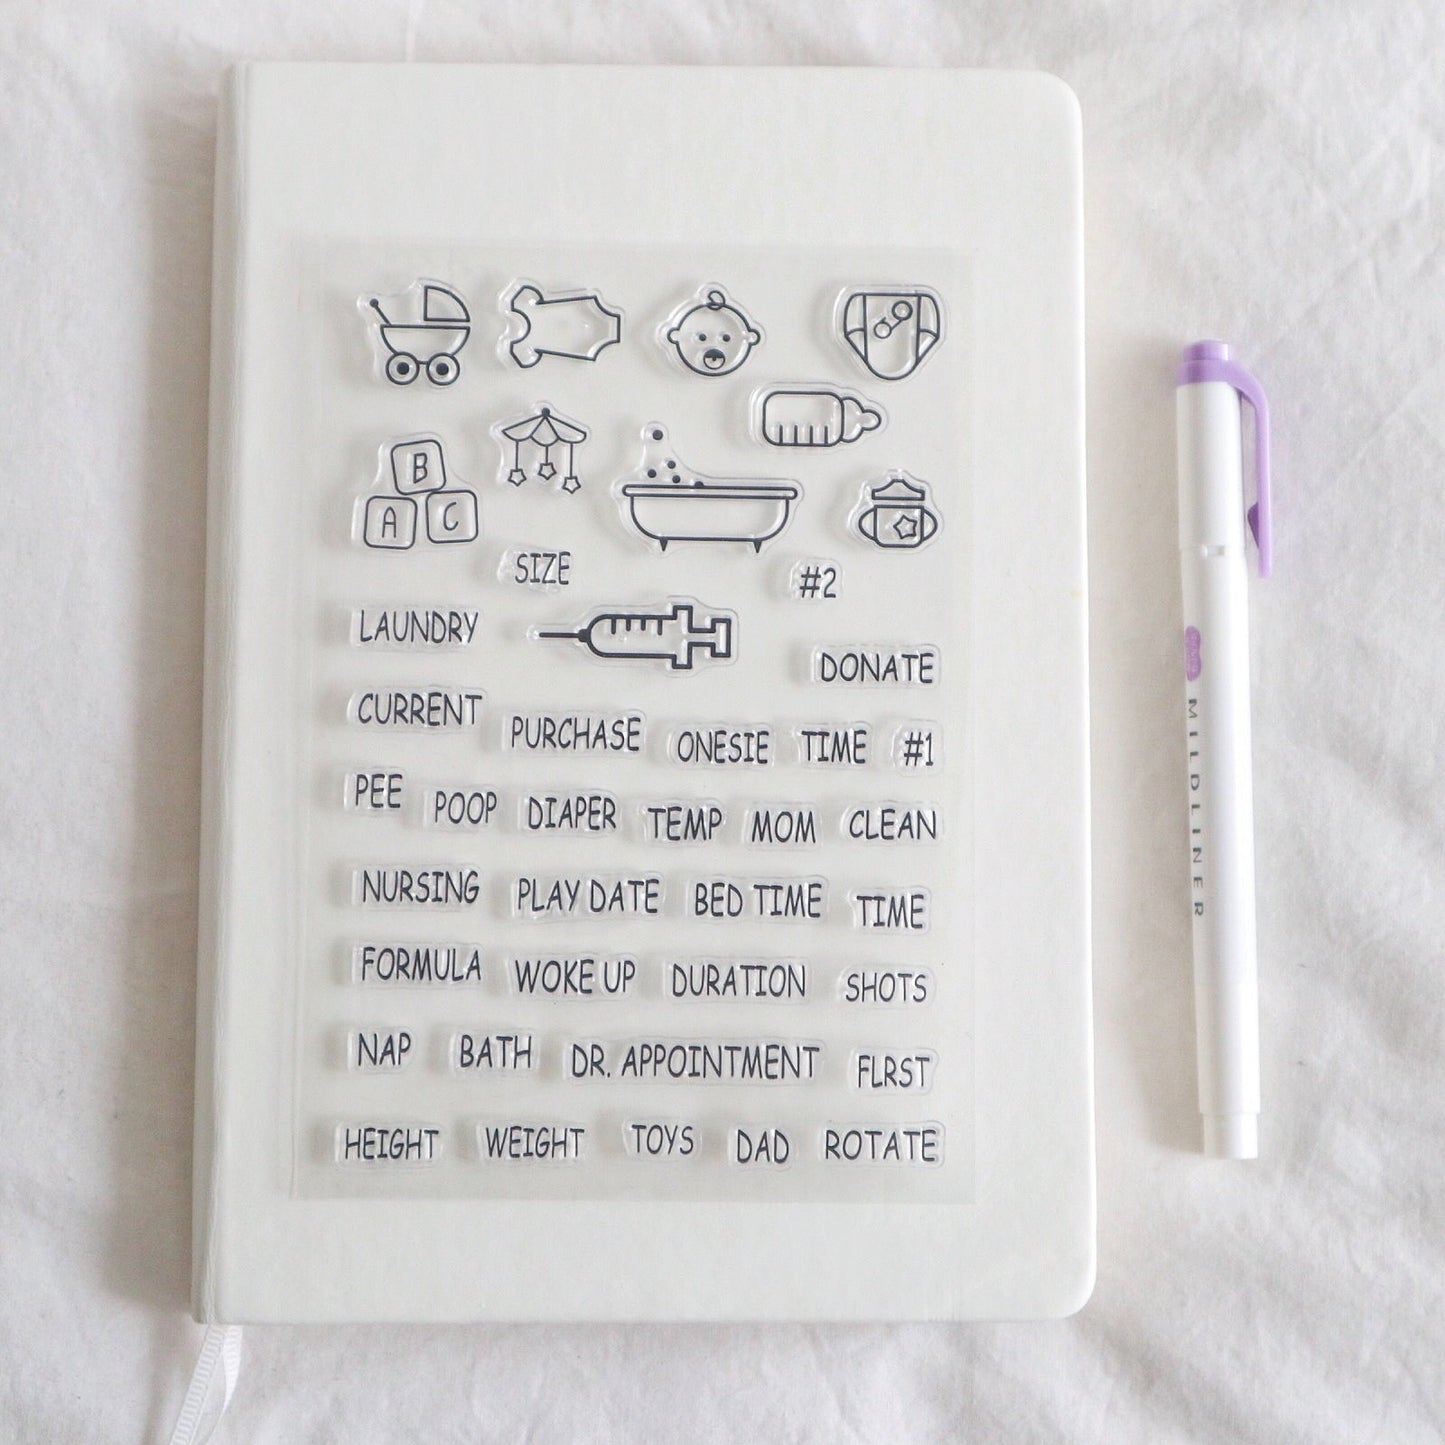 B
A C
SIZE #2
LAUNDRY
DONATE
CURRENT PURCHASE ONESIE TIME #1
PEE POOP DIAPER TEMP MOM CLEAN
NURSING PLAY DATE BED TIME TIME
FORMULA WOKE UP DURATION SHOTS
NAP BATH DR. APPOINTMENT FLRST
HEIGHT WEIGHT TOYS DAD ROTATE
MILDLINER